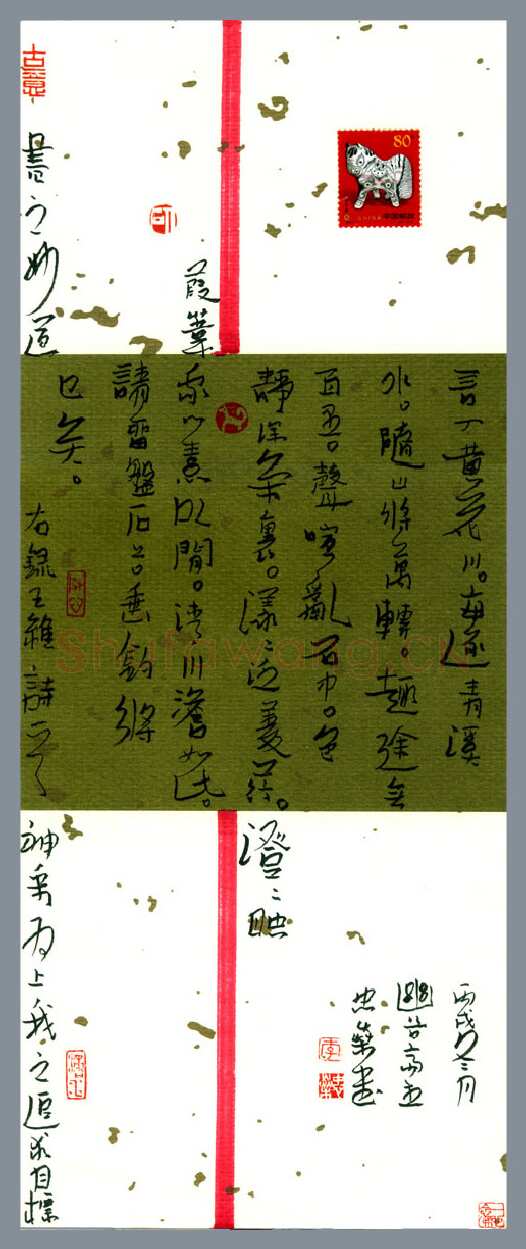 言入黃花川。每逐青溪
水。隨山將萬轉。趣途無
百里。聲喧亂石中。色
靜深松裏。漾〻泛菱荇。
澄〻映
葭葦
我心素以閒。清川澹如此。
請留盤石上垂釣將
已矣。
右錄王維詩一首
書之妙道
神采為上我之追求目標
丙戌冬三月
幽谷齋主
忠榮書
古意
80
中国邮政